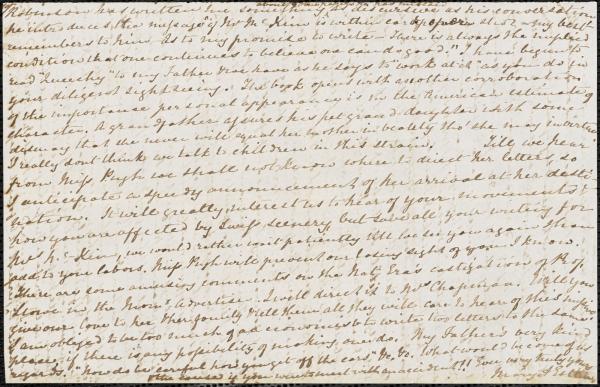 Robinson has written me some as curtive as his conversation
he introduces, the message if Mr Mc Kim is within ear or open shot - my best
remembers to him. As to my promise to write - there is always the implied
condition that one continues to believe one can do good." I have begun to
read "Queechy" to my Father & we have as he says to "work at it" as you do in
your diligent sight seeing. The book opens with another corroboration
of the importance personal appearance is in the American estimate of
character. A grandfather assures his pet grand daughter with some
dismay that she never will equal her mother in beauty tho' she may in virtue
I really dont think we talk to children in this strain. Till we hear
from Miss Pugh we shall not know where to direct her letters, so
I anticipate a speedy announcement of her arrival at her desti-
nation. It will greatly interest us to hear of your movements &
how you are affected by Swiss scenery but with all your writing for
Mrs Mc Kim, we would rather wait patiently till we see you again than
add to your labors. Miss Pugh will prevent our losing sight of you I know.
There are some amusing comments on the Nat. Era's castigation of Bp
in the Morn. Advertiser. I will direct it to Mrs Chapman. Will you
give our love to her & her family & tell them all they will care to hear of
I am obliged to be too much of an economist to write two letters to the same
place, if there is any possibility of making one do. My Father's very kind
regards. "Now do be careful how you get off the cars" &c &c. What would become of us
& the cause if you were to meet with an accident!!! Ever very truly yours
Mary A Estlin